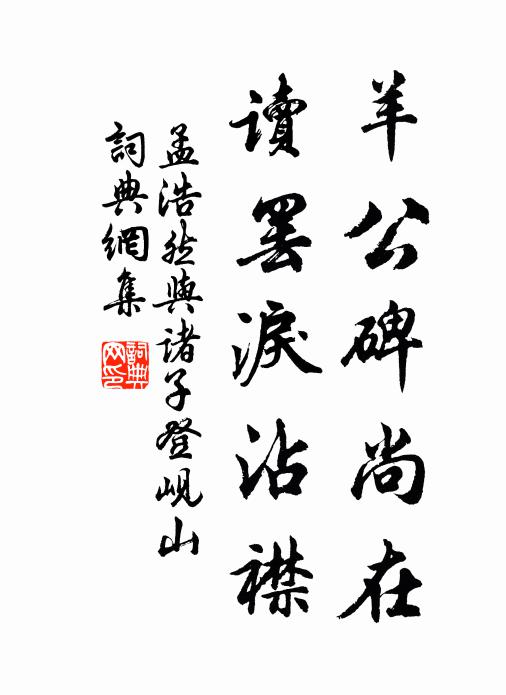 羊公碑尚在
讀罷淚沾襟
孟浩然與諸子登峴山
詞典網集
詞典网印